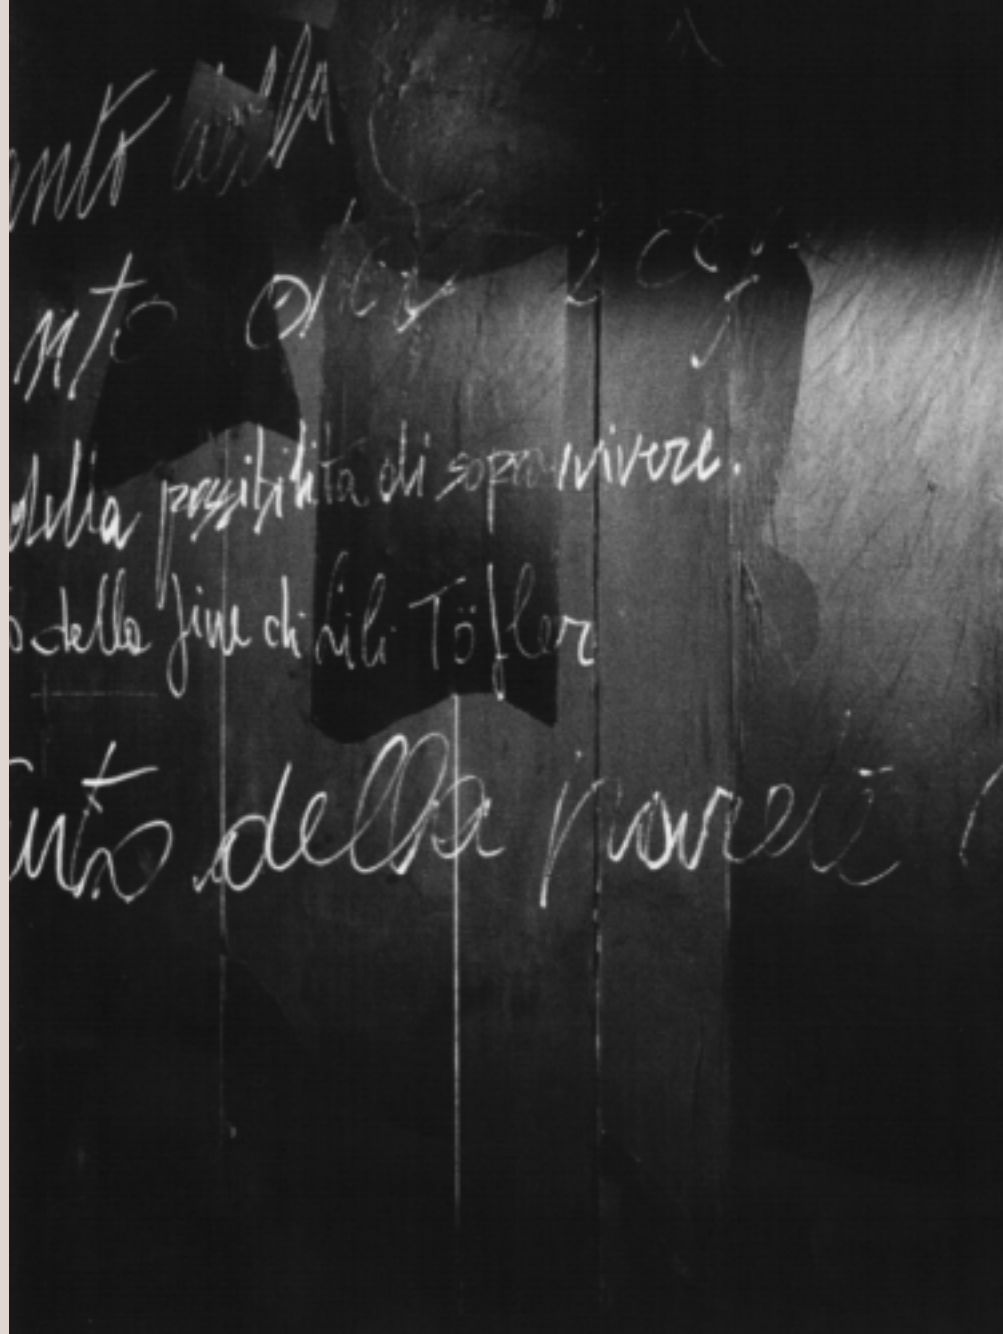 nto della
nto dei
della possibilità di sopravvivere.
o della fine di Lili Töfler
nto della parete